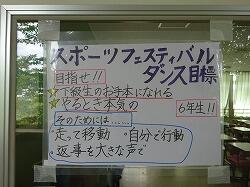 スポーツフェスティバル
ダンス目標
目指せ!!
☆下級生のお手本になれる
☆やるとき本気の
6年生!!
そのためには……
・走って移動 ・自分で行動
・返事を大きな声で